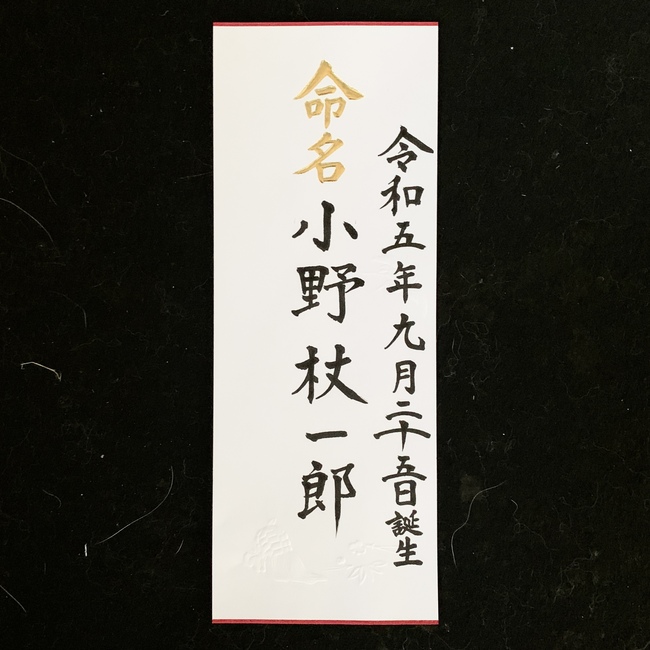 令和五年九月二十五日誕生
命名 小野杖一郎